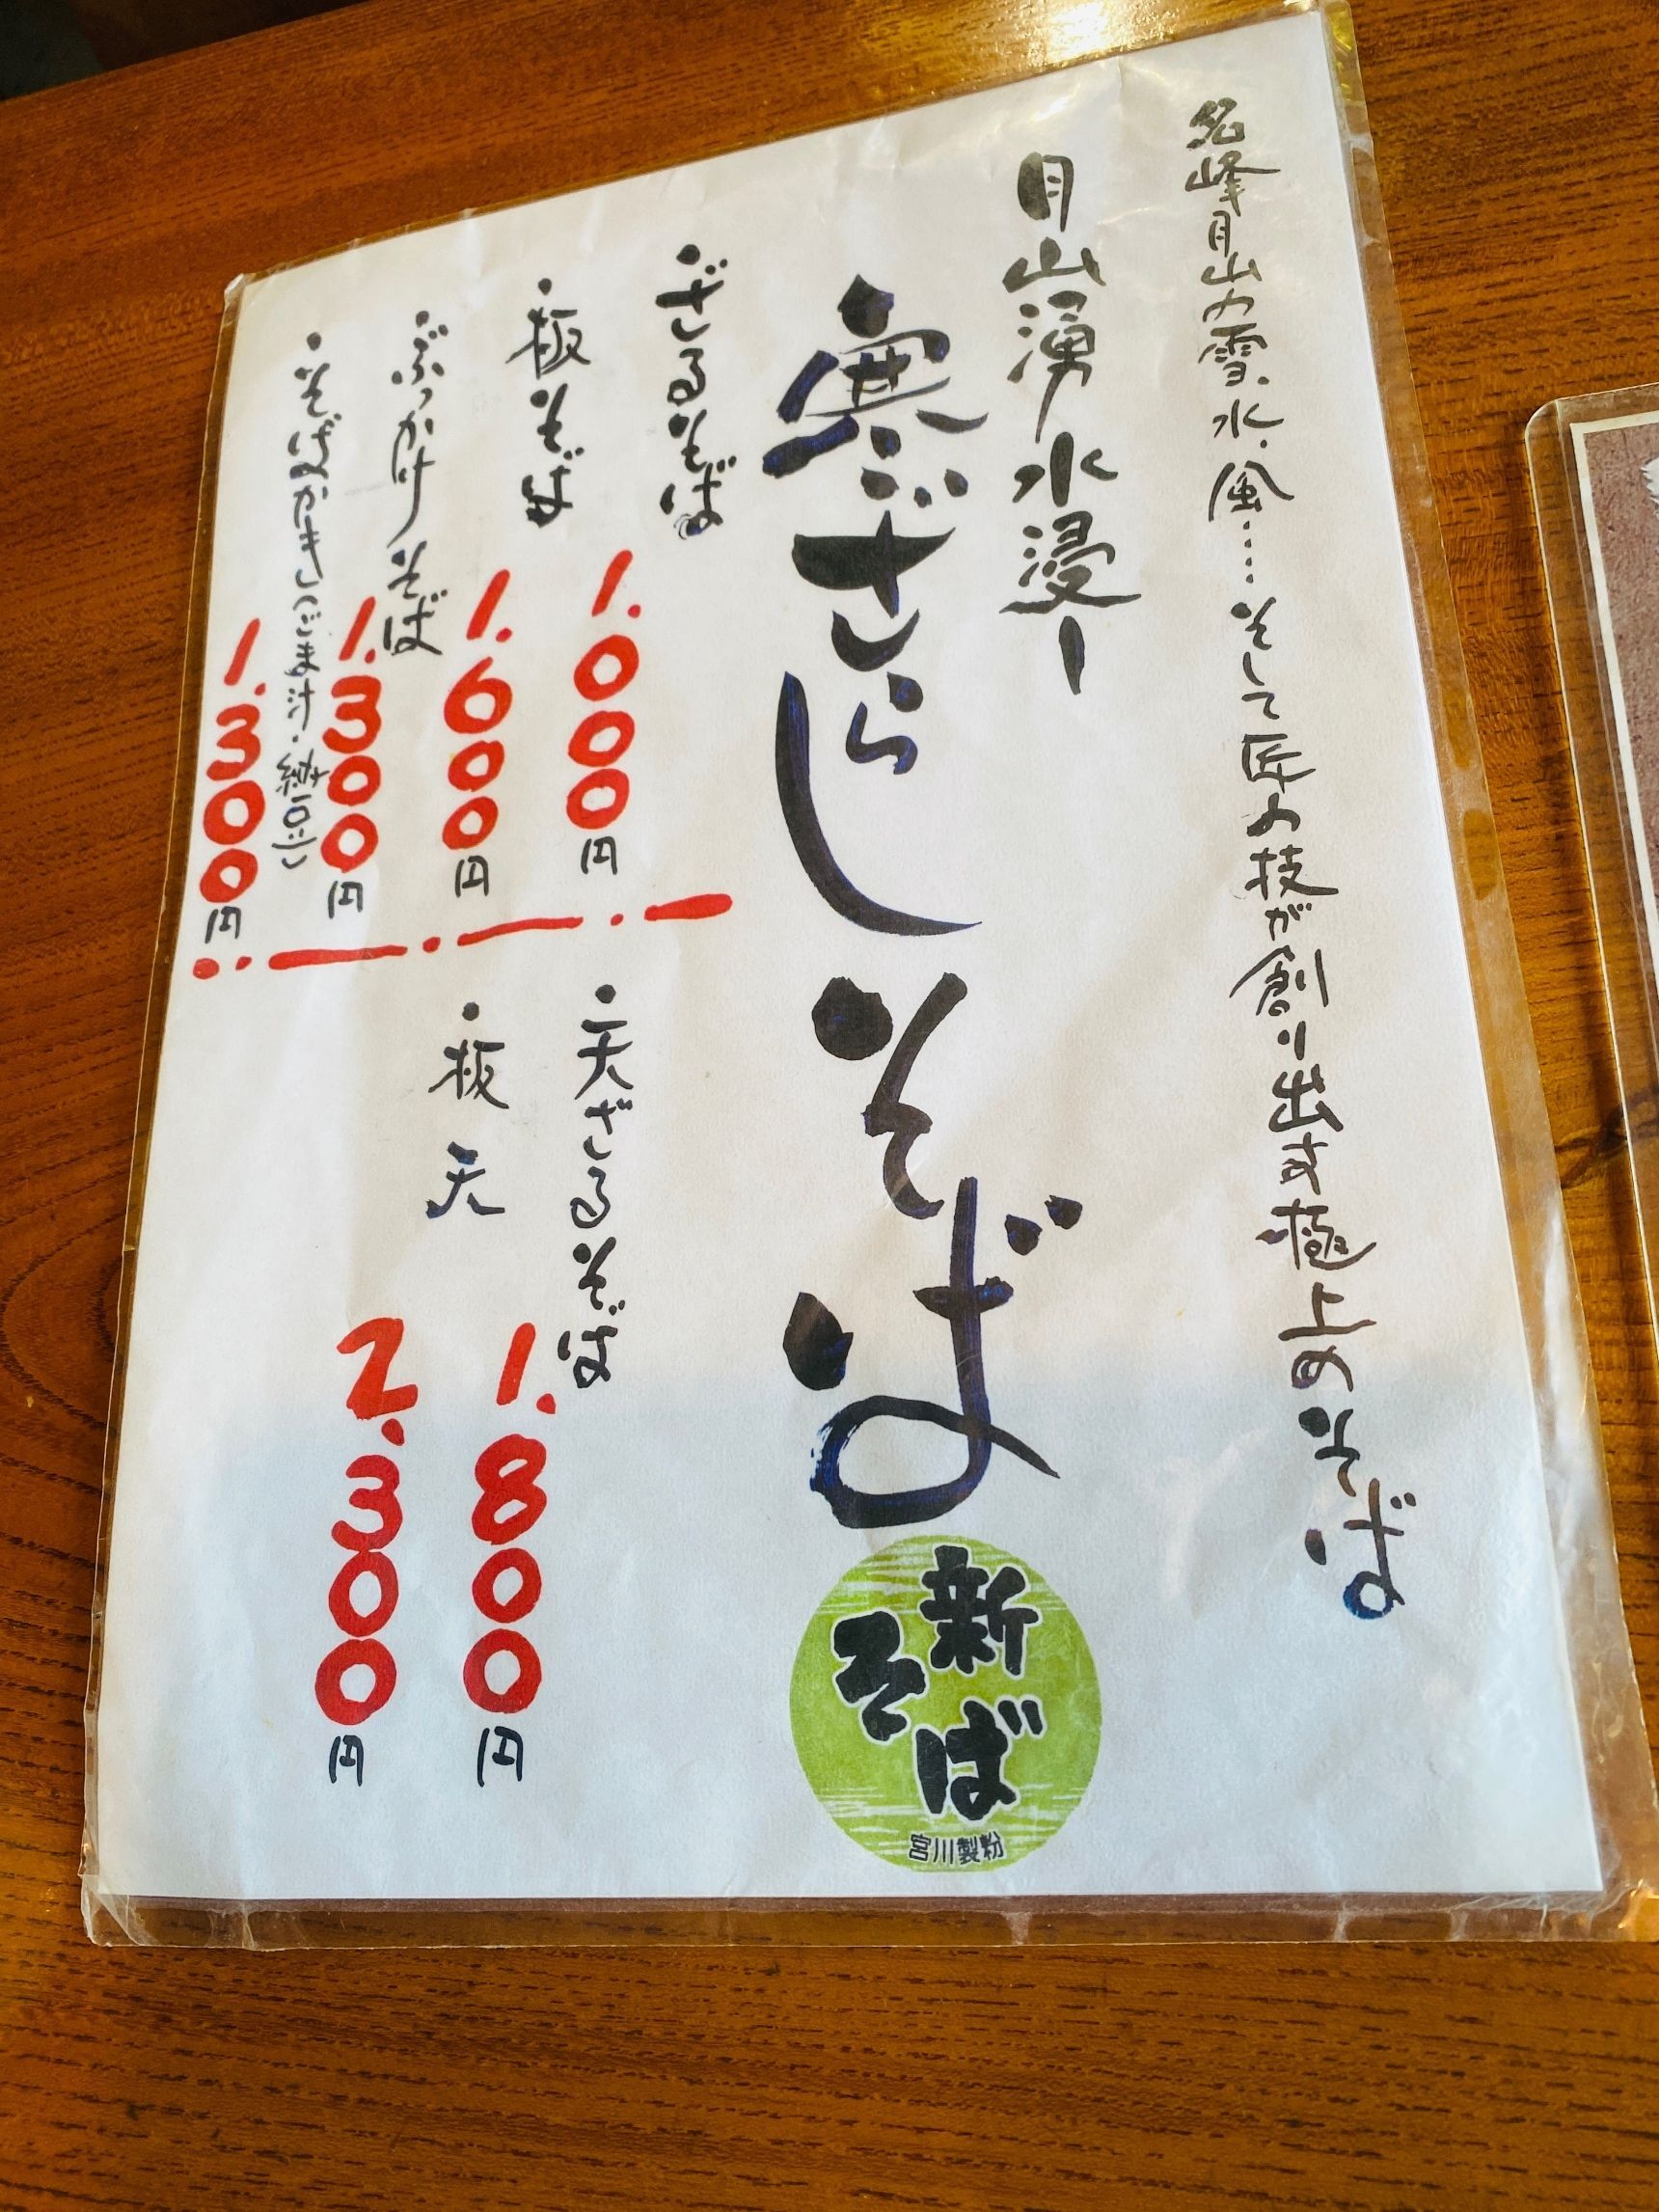 名峰月山の雪、水、風……そして匠の技が創り出す極上のそば
月山湧水浸し
寒ざらしそば
新そば
宮川製粉
・ざるそば 1.000円
・板そば 1.600円
・ぶっかけそば 1.300円
・そばがき(ごま汁・納豆汁) 1.300円
・天ざるそば 1.800円
・板天 2.300円